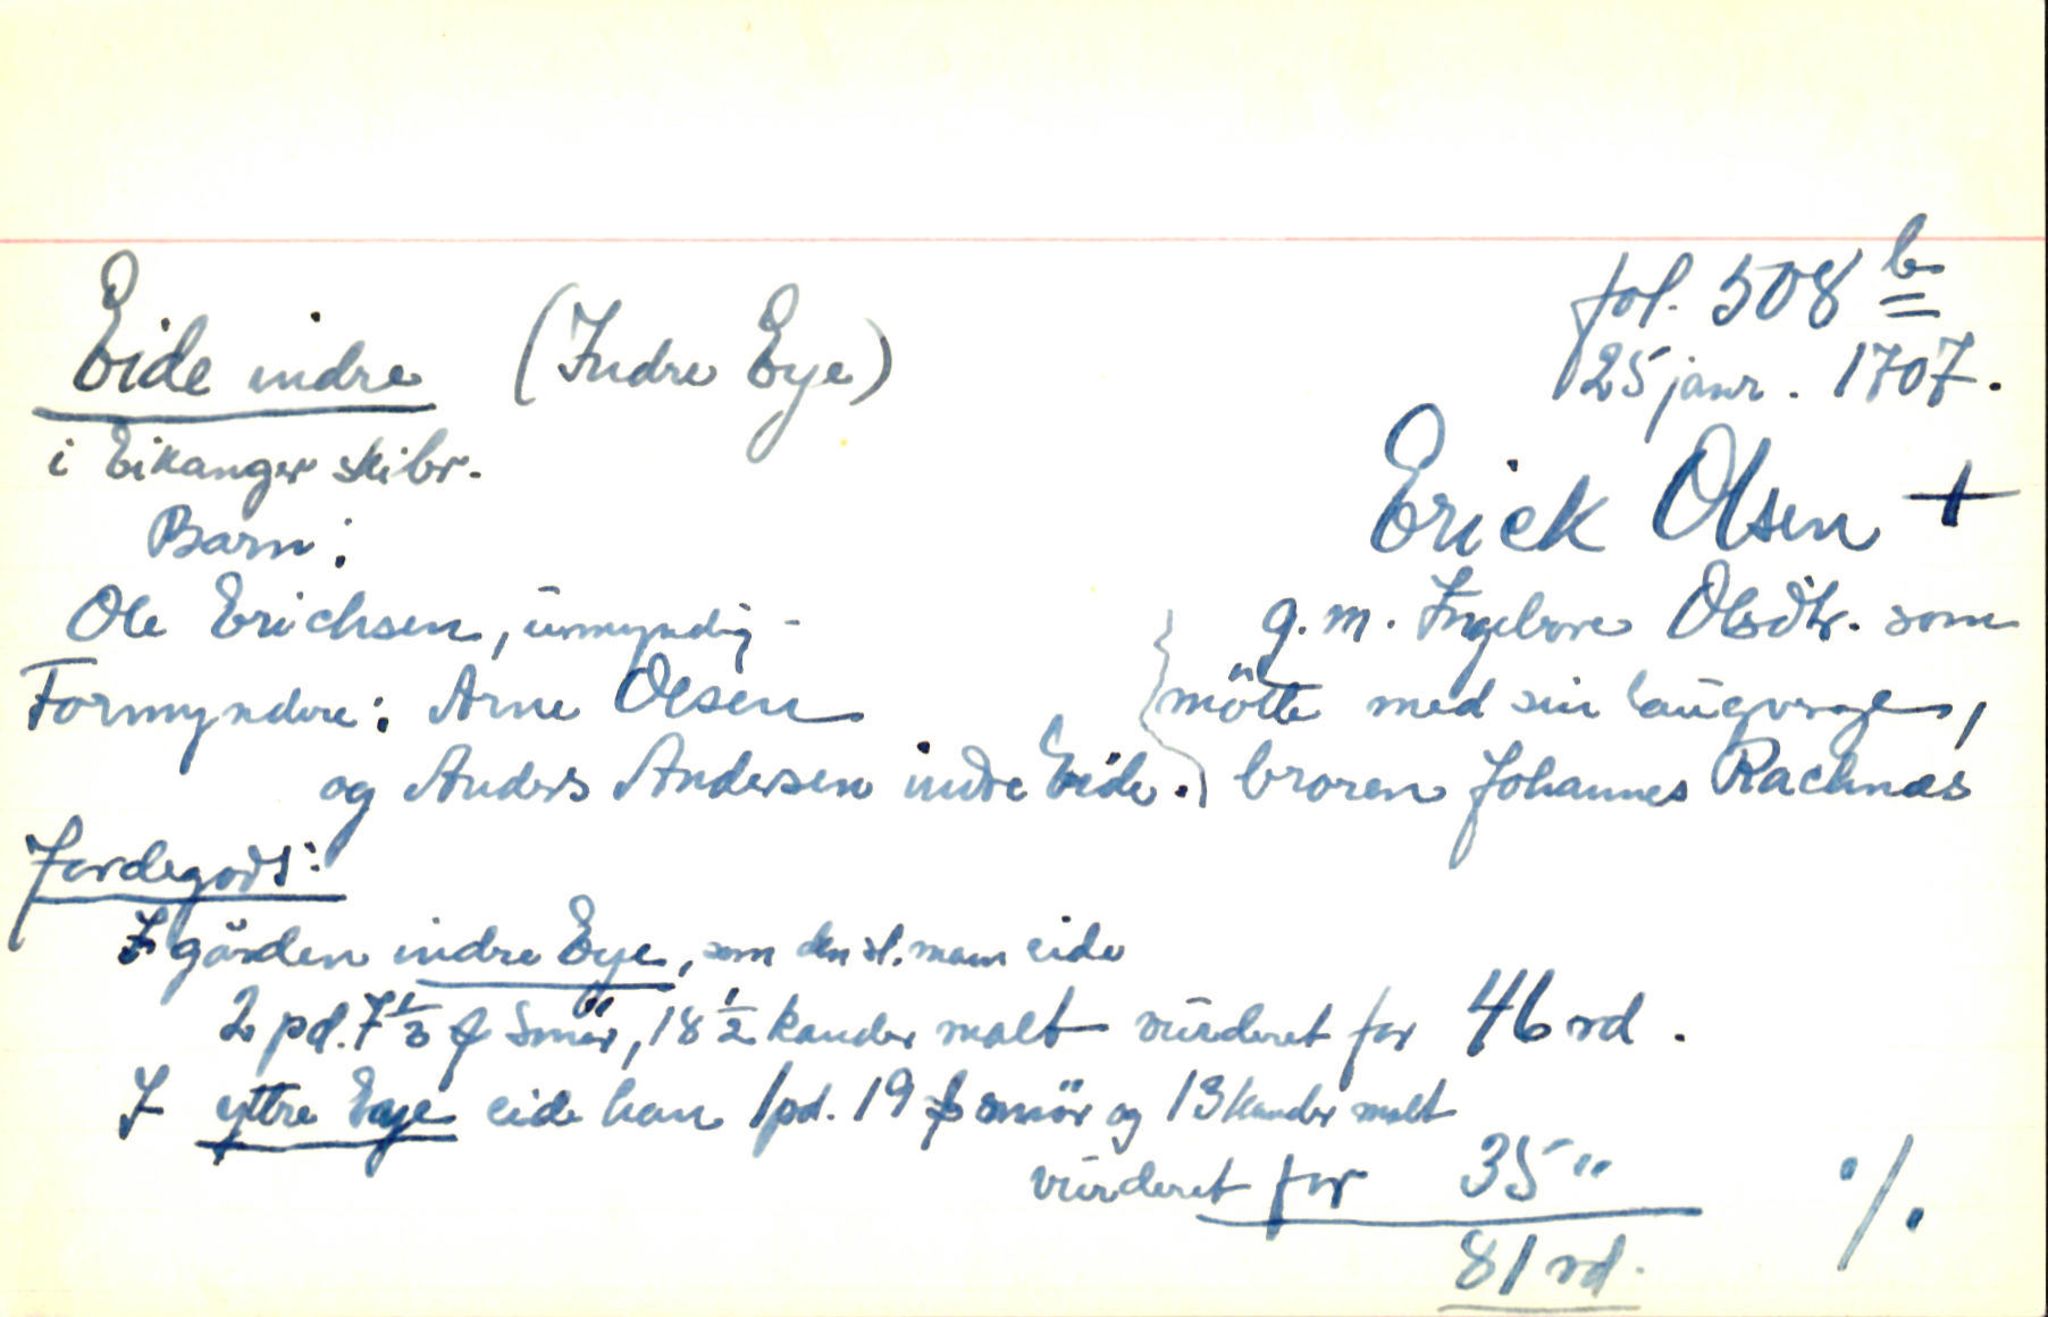 Eide indre (Indre Eye)
i Eikanger skibr.
fol. 508 b
25 janr. 1707.
Erick Olsen +
g. m. Ingebore Olsdtr. som
mötte med sin laugverge,
broren Johannes Rachnæs
Barn:
Ole Erichsen, umyndig -
Formyndere: Arne Olsen
og Anders Andersen indre Eide.
Jordegods:
I gården indre Eye, som den sl. mann eide
2 pd. 7 1/3 ℔ Smör, 18 1/2 kander malt vurderet for 46 rd.
I yttre Eye eide han 1 pd. 19 ℔ smör og 13 kander malt
vurderet for 35 "
81 rd.
./.